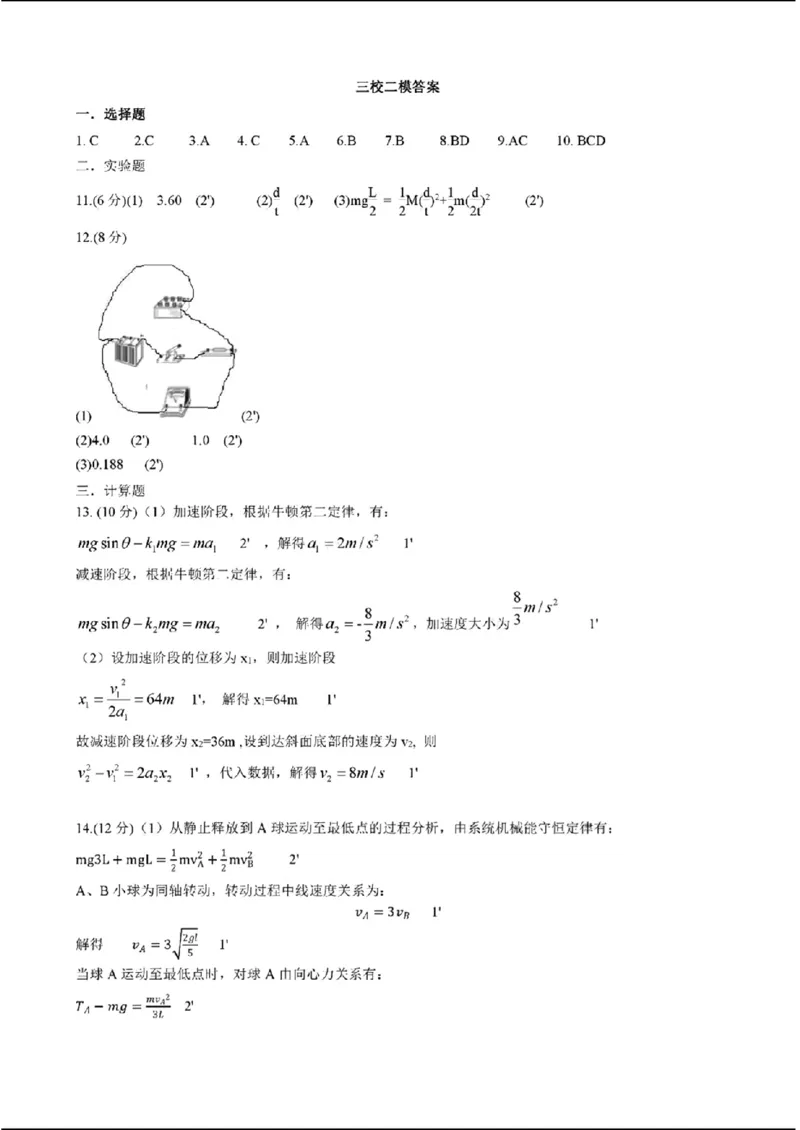 三校二模答案
一．选择题
1. C 2.C 3.A 4. C 5.A 6.B 7.B 8.BD 9.AC 10. BCD
二．实验题
11.(6 分)(1) 3.60 (2') (2)d/t (2') (3)mg L/2 = 1/2 M(d/t)²+1/2 m(d/2t)² (2')
12.(8 分)
(1) (2')
(2)4.0 (2') 1.0 (2')
(3)0.188 (2')
三．计算题
13. (10 分)（1）加速阶段，根据牛顿第二定律，有：
mg sin θ − k₁mg = ma₁ 2' ，解得 a₁ = 2m / s² 1'
减速阶段，根据牛顿第二定律，有：
mg sin θ − k₂mg = ma₂ 2' ， 解得 a₂ = -8/3 m / s² ，加速度大小为 8/3 m / s² 1'
（2）设加速阶段的位移为 x₁，则加速阶段
x₁ = v₁²/2a₁ = 64m 1'， 解得 x₁=64m 1'
故减速阶段位移为 x₂=36m ,设到达斜面底部的速度为 v₂, 则
v₂² − v₁² = 2a₂x₂ 1' ，代入数据，解得 v₂ = 8m / s 1'
14.(12 分)（1）从静止释放到 A 球运动至最低点的过程分析，由系统机械能守恒定律有：
mg3L + mgL = 1/2 mv_A² + 1/2 mv_B² 2'
A、B 小球为同轴转动，转动过程中线速度关系为：
v_A = 3v_B 1'
解得 v_A = 3√(2gl/5) 1'
当球 A 运动至最低点时，对球 A 由向心力关系有：
T_A − mg = mv_A²/3L 2'